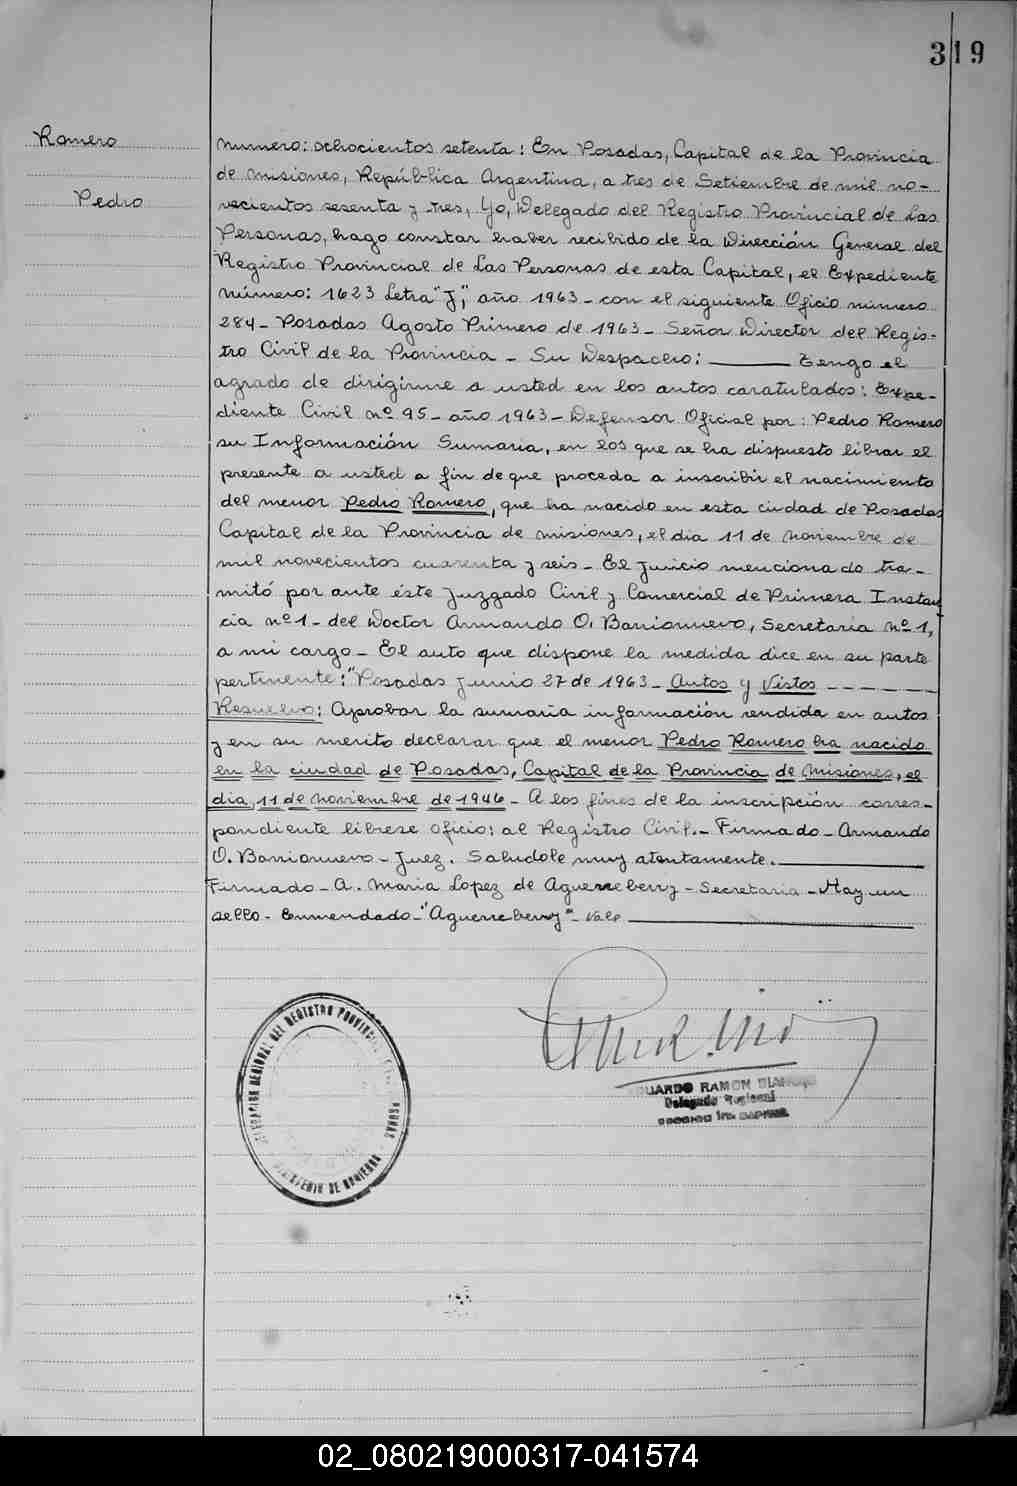 319
Romero
Pedro
Numero: ochocientos setenta: En Posadas, Capital de la Provincia
de Misiones, República Argentina, a tres de Setiembre de mil no-
vecientos sesenta y tres, Yo, Delegado del Registro Provincial de Las
Personas, hago constar haber recibido de la Dirección General del
Registro Provincial de Las Personas de esta Capital, el Expediente
Número: 1623 Letra "J", año 1963 - con el siguiente Oficio número
284 - Posadas Agosto Primero de 1963 - Señor Director del Regis-
tro Civil de la Provincia - Su Despacho: ——— Tengo el
agrado de dirigirme a usted en los autos caratulados: Expe-
diente Civil nº 95 - año 1963 - Defensor Oficial por: Pedro Romero
su Información Sumaria, en los que se ha dispuesto librar el
presente a usted a fin de que proceda a inscribir el nacimiento
del menor Pedro Romero, que ha nacido en esta ciudad de Posadas
Capital de la Provincia de Misiones, el dia 11 de Noviembre de
mil novecientos cuarenta y seis - El juicio mencionado tra-
mitó por ante éste Juzgado Civil y Comercial de Primera Instan
cia nº 1 - del Doctor Armando O. Barrionuevo, Secretaria nº 1,
a mi cargo - El auto que dispone la medida dice en su parte
pertinente: "Posadas Junio 27 de 1963 - Autos y Vistos - - - - -
Resuelvo: Aprobar la sumaria información rendida en autos
y en su merito declarar que el menor Pedro Romero ha nacido
en la ciudad de Posadas, Capital de la Provincia de Misiones, el
dia 11 de Noviembre de 1946 - A los fines de la inscripción corres-
pondiente librese oficio: al Registro Civil. - Firmado - Armando
O. Barrionuevo - Juez. Saludole muy atentamente. ———
Firmado - A. Maria Lopez de Aguerreberry - Secretaria - Hay un
sello - Enmendado - "Aguerreberry" - Vale ———
DELEGACION REGIONAL DEL REGISTRO PROVINCIAL DE LAS PERSONAS
MINISTERIO DE GOBIERNO
EDUARDO RAMON
Delegado Regional
02_080219000317-041574